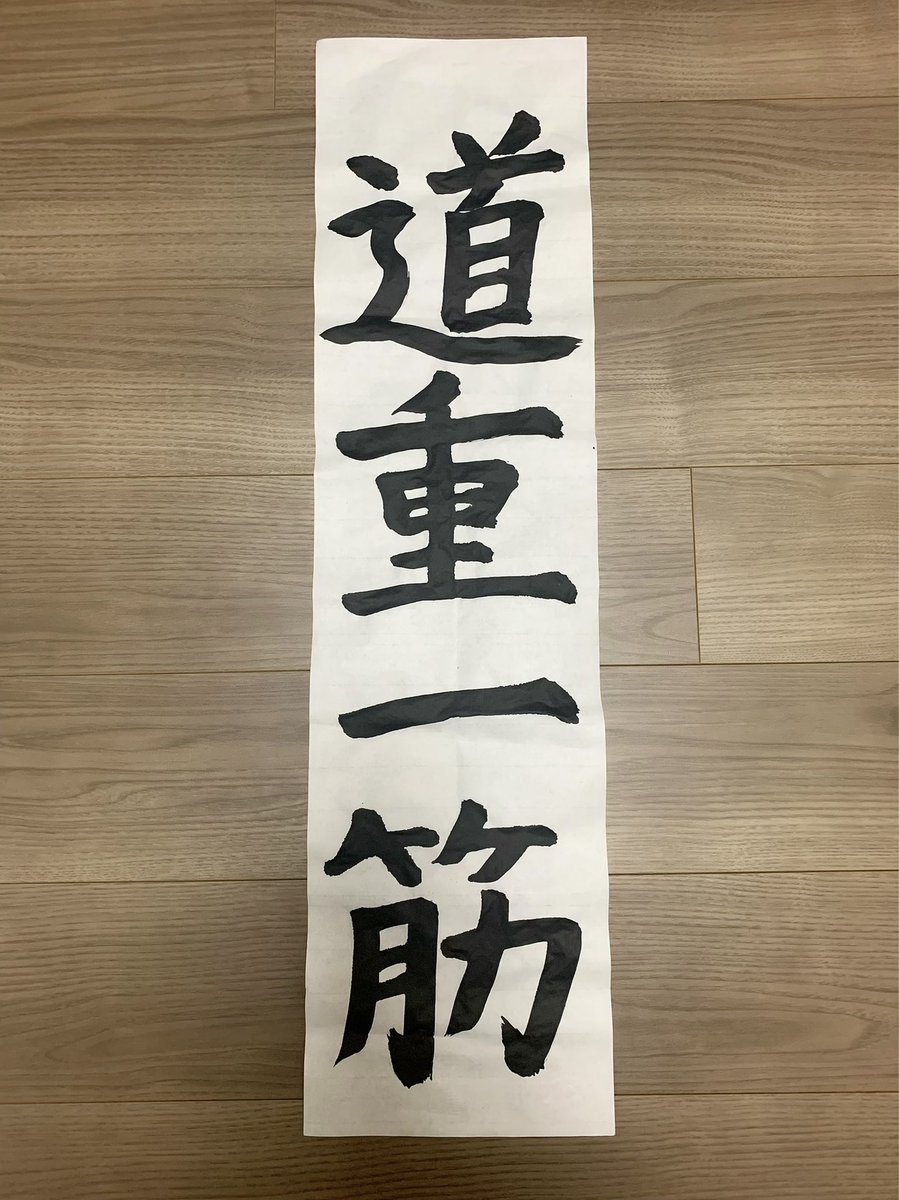 道重一筋